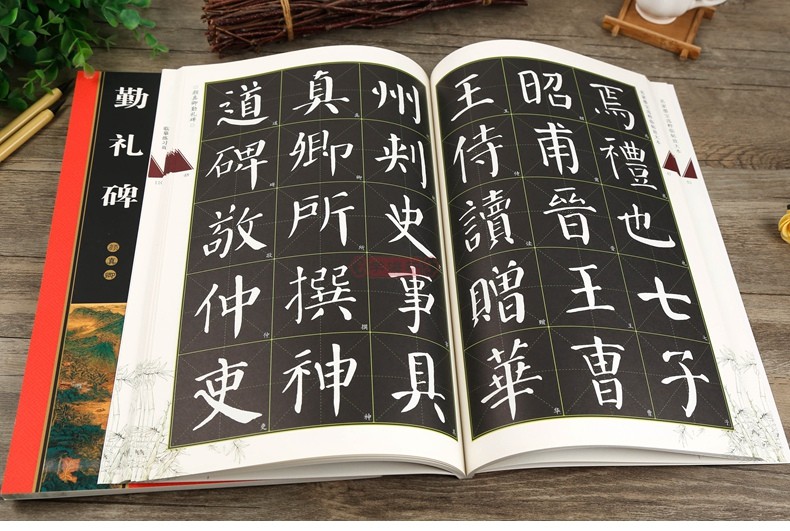 勤礼碑
焉禮也七子
昭甫晉王曹
王侍讀贈華
州刾史事具
真卿所撰神
道碑敬仲吏